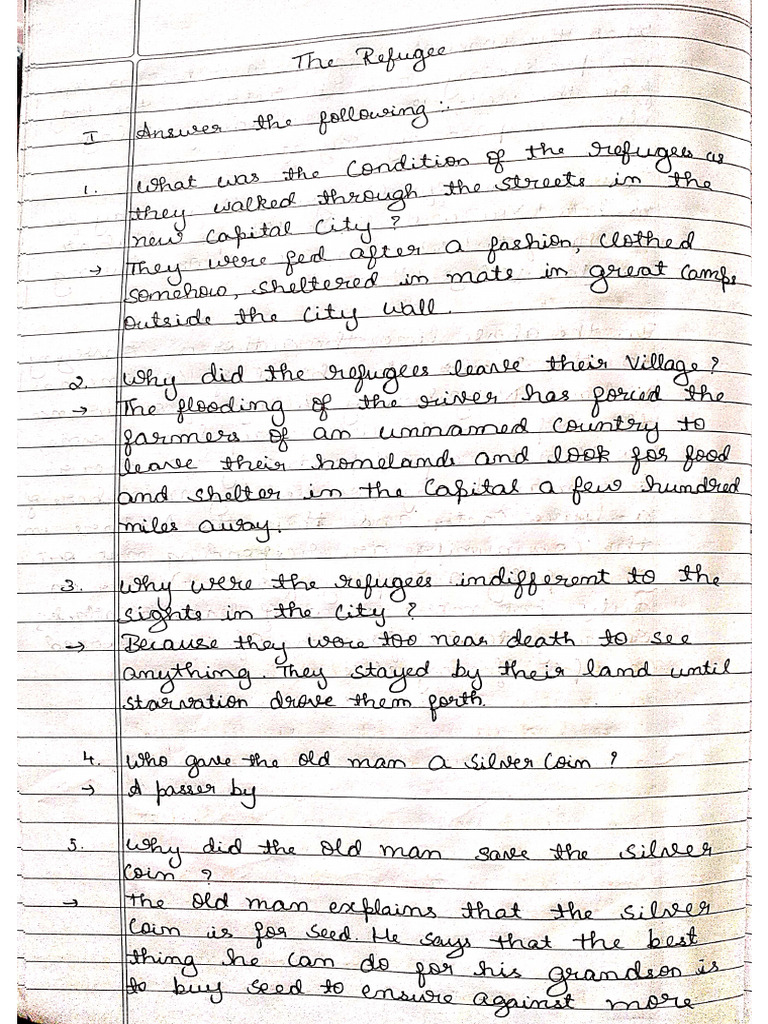 The Refugee
I Answer the following :-
1. What was the Condition of the refugees as
they walked through the streets in the
new Capital City ?
→ They were fed after a fashion, clothed
somehow, sheltered in mats in great camps
outside the City wall.
2. Why did the refugees leave their village ?
→ The flooding of the river has forced the
farmers of an unnamed country to
leave their homelands and look for food
and shelter in the Capital a few hundred
miles away.
3. Why were the refugees indifferent to the
sights in the city ?
→ Because they were too near death to see
anything. They stayed by their land until
starvation drove them forth.
4. Who gave the old man a silver coin ?
→ A passer by
5. Why did the old man save the silver
coin ?
→ The old man explains that the silver
coin is for seed. He says that the best
thing he can do for his grandson is
to buy seed to ensure against more